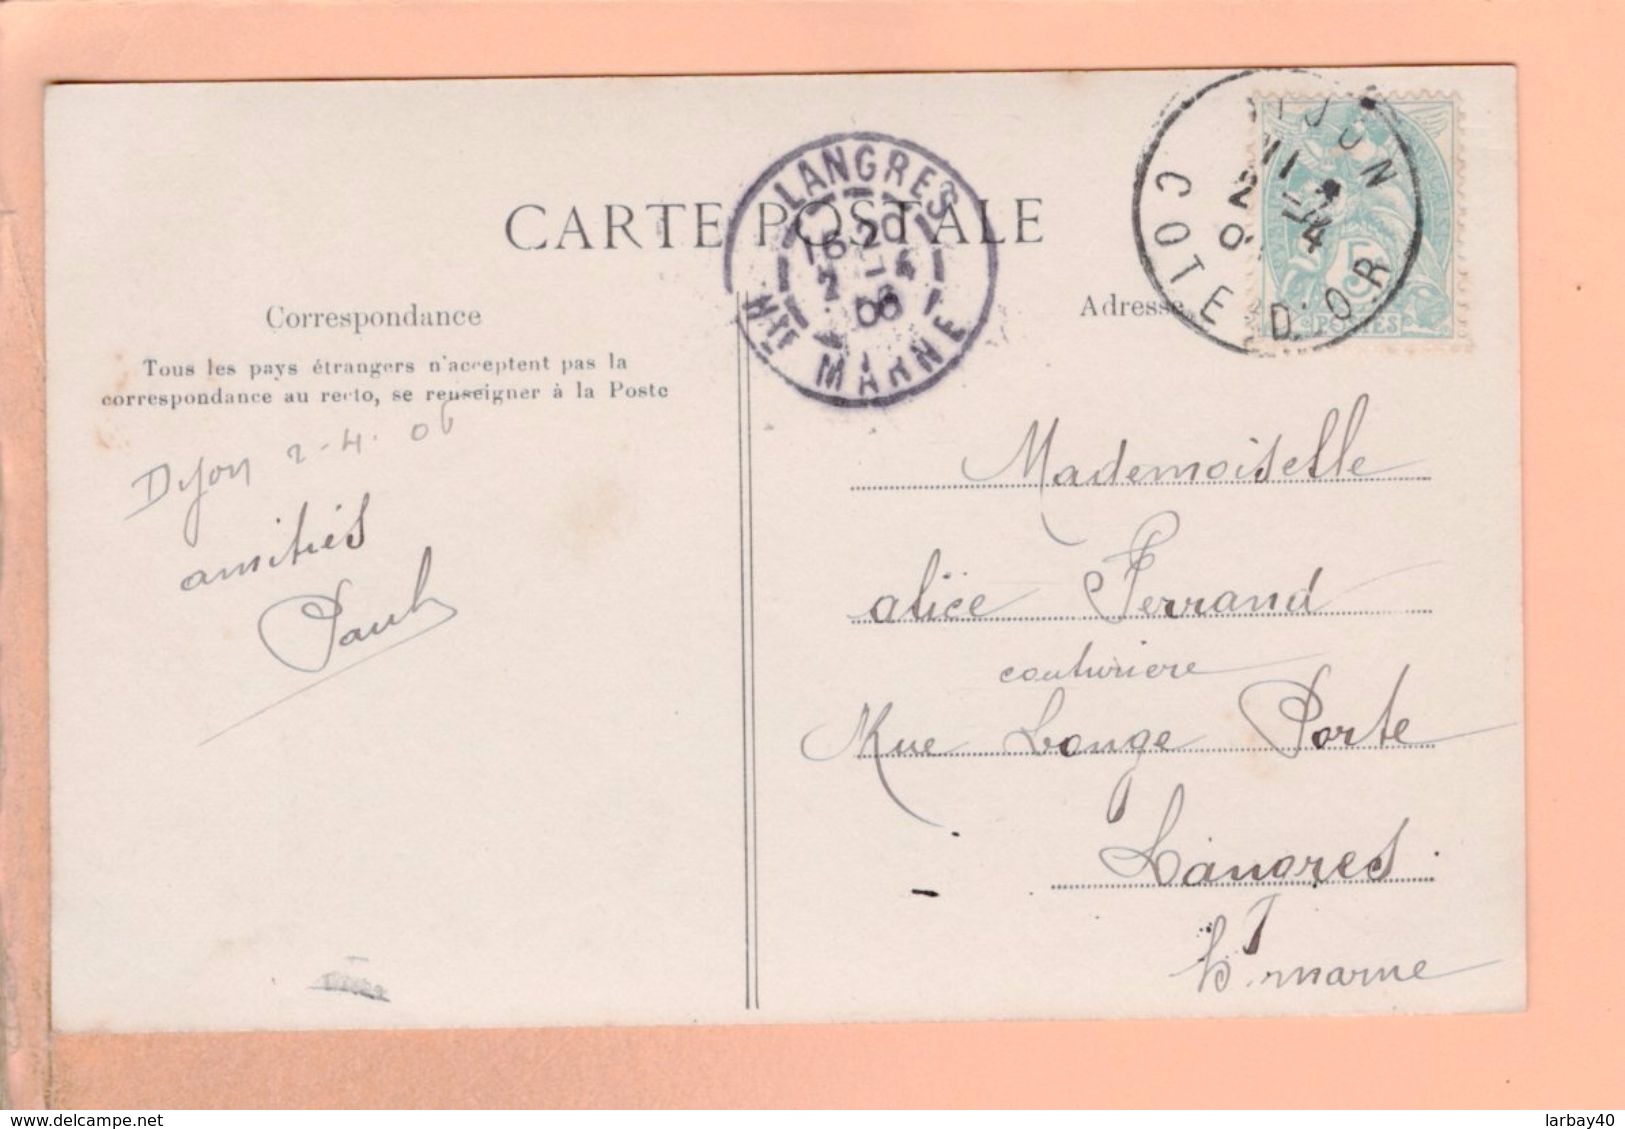 CARTE POSTALE
LANGRES
16 20
2 4
06
HTE MARNE
DIJON
2 4
COTE D'OR
5c
POSTES
Correspondance
Tous les pays étrangers n'acceptent pas la
correspondance au recto, se renseigner à la Poste
Adresse
Dijon 2-4.06
amitiés
Paul
Mademoiselle
alice Ferrand
couturiere
Rue Longe Porte
Langres.
h. marne
delcampe.net
larbay40